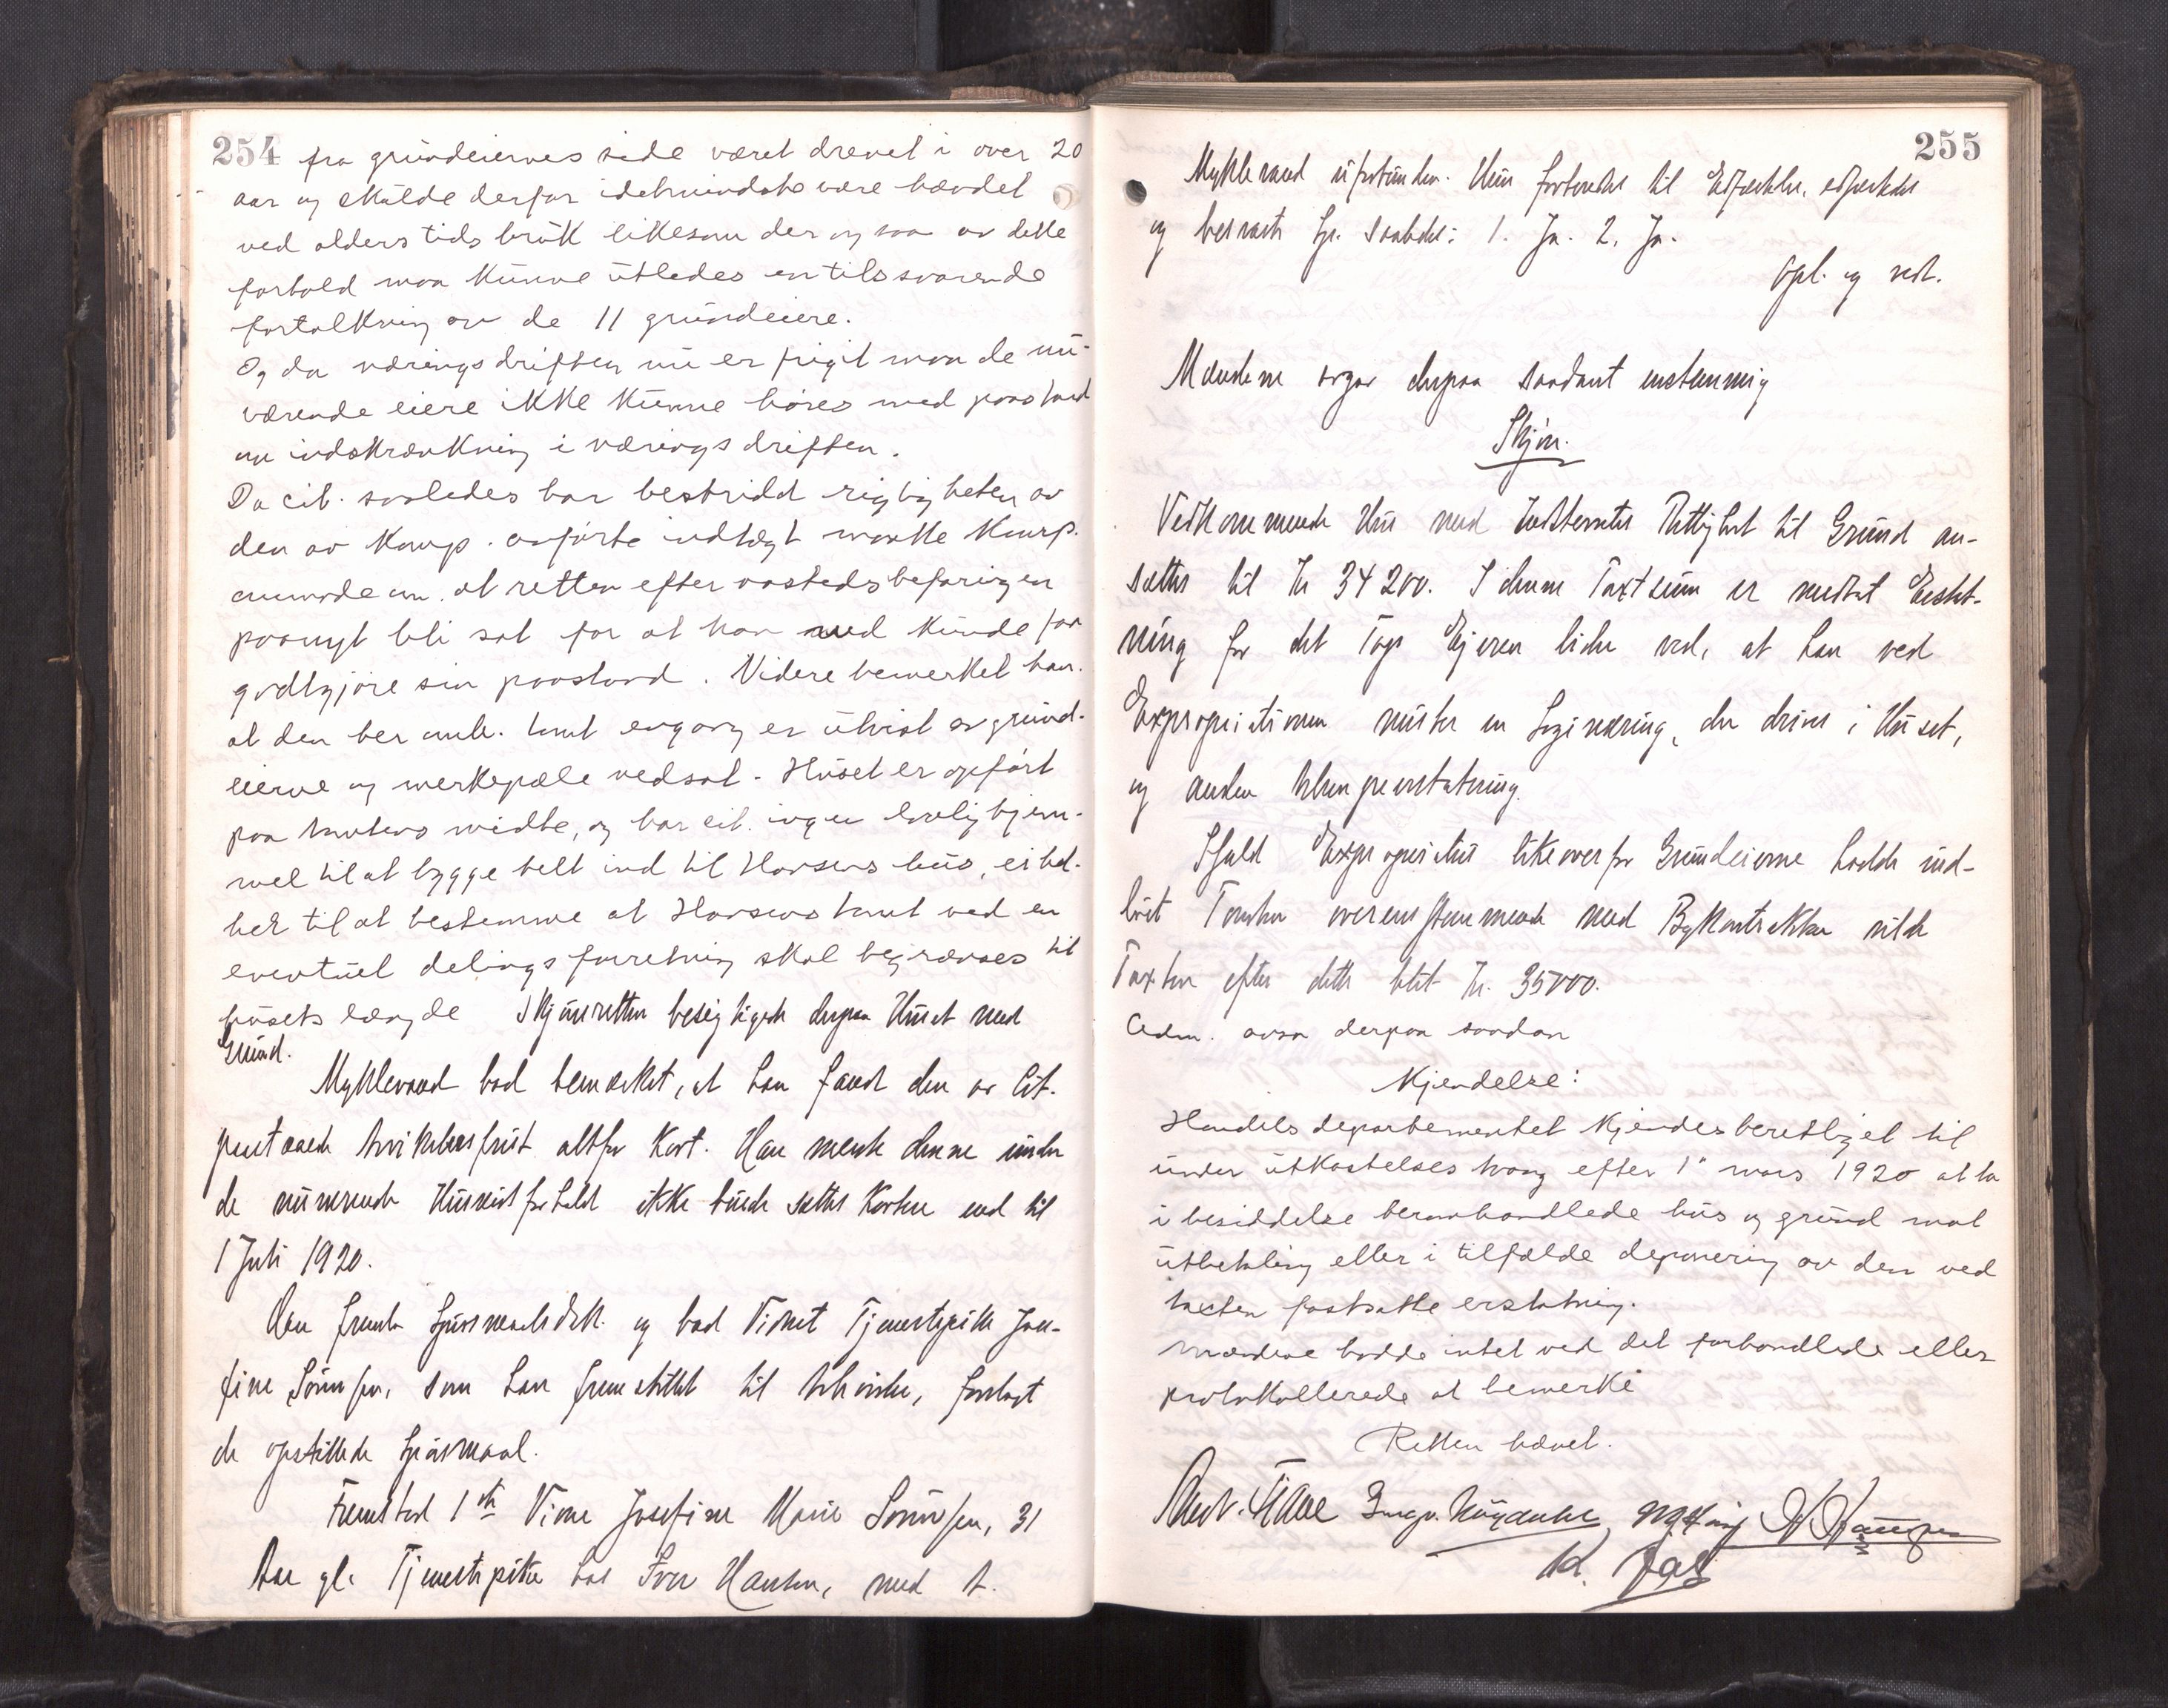 254 fra grundeiernes side været drevet i over 20
aar og skulde derfor idetmindste være hævdet
ved alders tids bruk likesom der ogsaa av dette
forhold maa kunne utledes en tilsvarende
fortolkning av de 11 grundeiere.
Og da næringsdriften nu er frigit maa de nu-
værende eiere ikke kunne høres med paastand
om indskrænkning i næringsdriften.
Da cit. saaledes har bestridt rigtigheten av
den av Komp. anførte indtægt maatte Komp.
anmode om at retten efter aastedsbefaringen
paanyt bli sat for at han kunde faa
godtgjøre sin paastand. Videre bemerket han
at den ber. omh. tomt engang er utvist av grund-
eierne og merkepæle nedsat. Huset er opført
paa tomtens midte, og har cit. ingen lovlig hjem-
mel til at bygge helt ind til Hansens hus, ei hel-
ler til at bestemme at Hansens tomt ved en
eventuel delingsforretning skal begrænses til
husets længde Skjønsretten besigtigede derpaa Huset med
Grund.
Myklevand bad bemærket, at han fandt den av Cit.
paastaaede fravikelsesfrist altfor kort. Han mente denne under
de nuværende Husneisforhold ikke burde sættes kortere end til
1 Juli 1920.
Han fremla Spørsmaalsdok. og bad Vidnet Tjenestepike Jose-
fine Sørensen, som han fremstillet til , forelagt
de opstillede Spørsmaal.
Fremstod 1ste Vidne Josefine Marie Sørensen, 31
Aar gl. Tjenestepike hos Iver Hansen, med
255
Myklevand . Hun forberedtes til Edfæstelse, edfæstedes
og besvarte Sp. saaledes: 1. Ja. 2. Ja.
Opl. og vedt.
Mændene avgav derpaa saadant enstemmig
Skjøn.
Vedkommende Hus med Rettighet til Grund an-
sættes til Kr 34200. I denne Taxtsum er medtat Erstat-
ning for det Tap Ejeren lider ved, at han ved
Expropriationen mister en Loginæring, der drives i Huset,
og anden Ulempeerstatning.
Ifald Expropriatus likeoverfor Grundeierne hadde ind-
løst Tomten overensstemmende med Bykontrakten vilde
Taxten efter dette blit Kr. 35000.
Adm. avsa derpaa saadan
Kjendelse:
Handelsdepartementet kjendes berettiget til
under utkastelses tvang efter 1' mars 1920 at ta
i besiddelse beromhandlede hus og grund mot
utbetaling eller i tilfælde deponering av den ved
taxten fastsatte erstatning.
Mændene hadde intet ved det forhandlede eller
protokollerede at bemerke
Retten hævet.